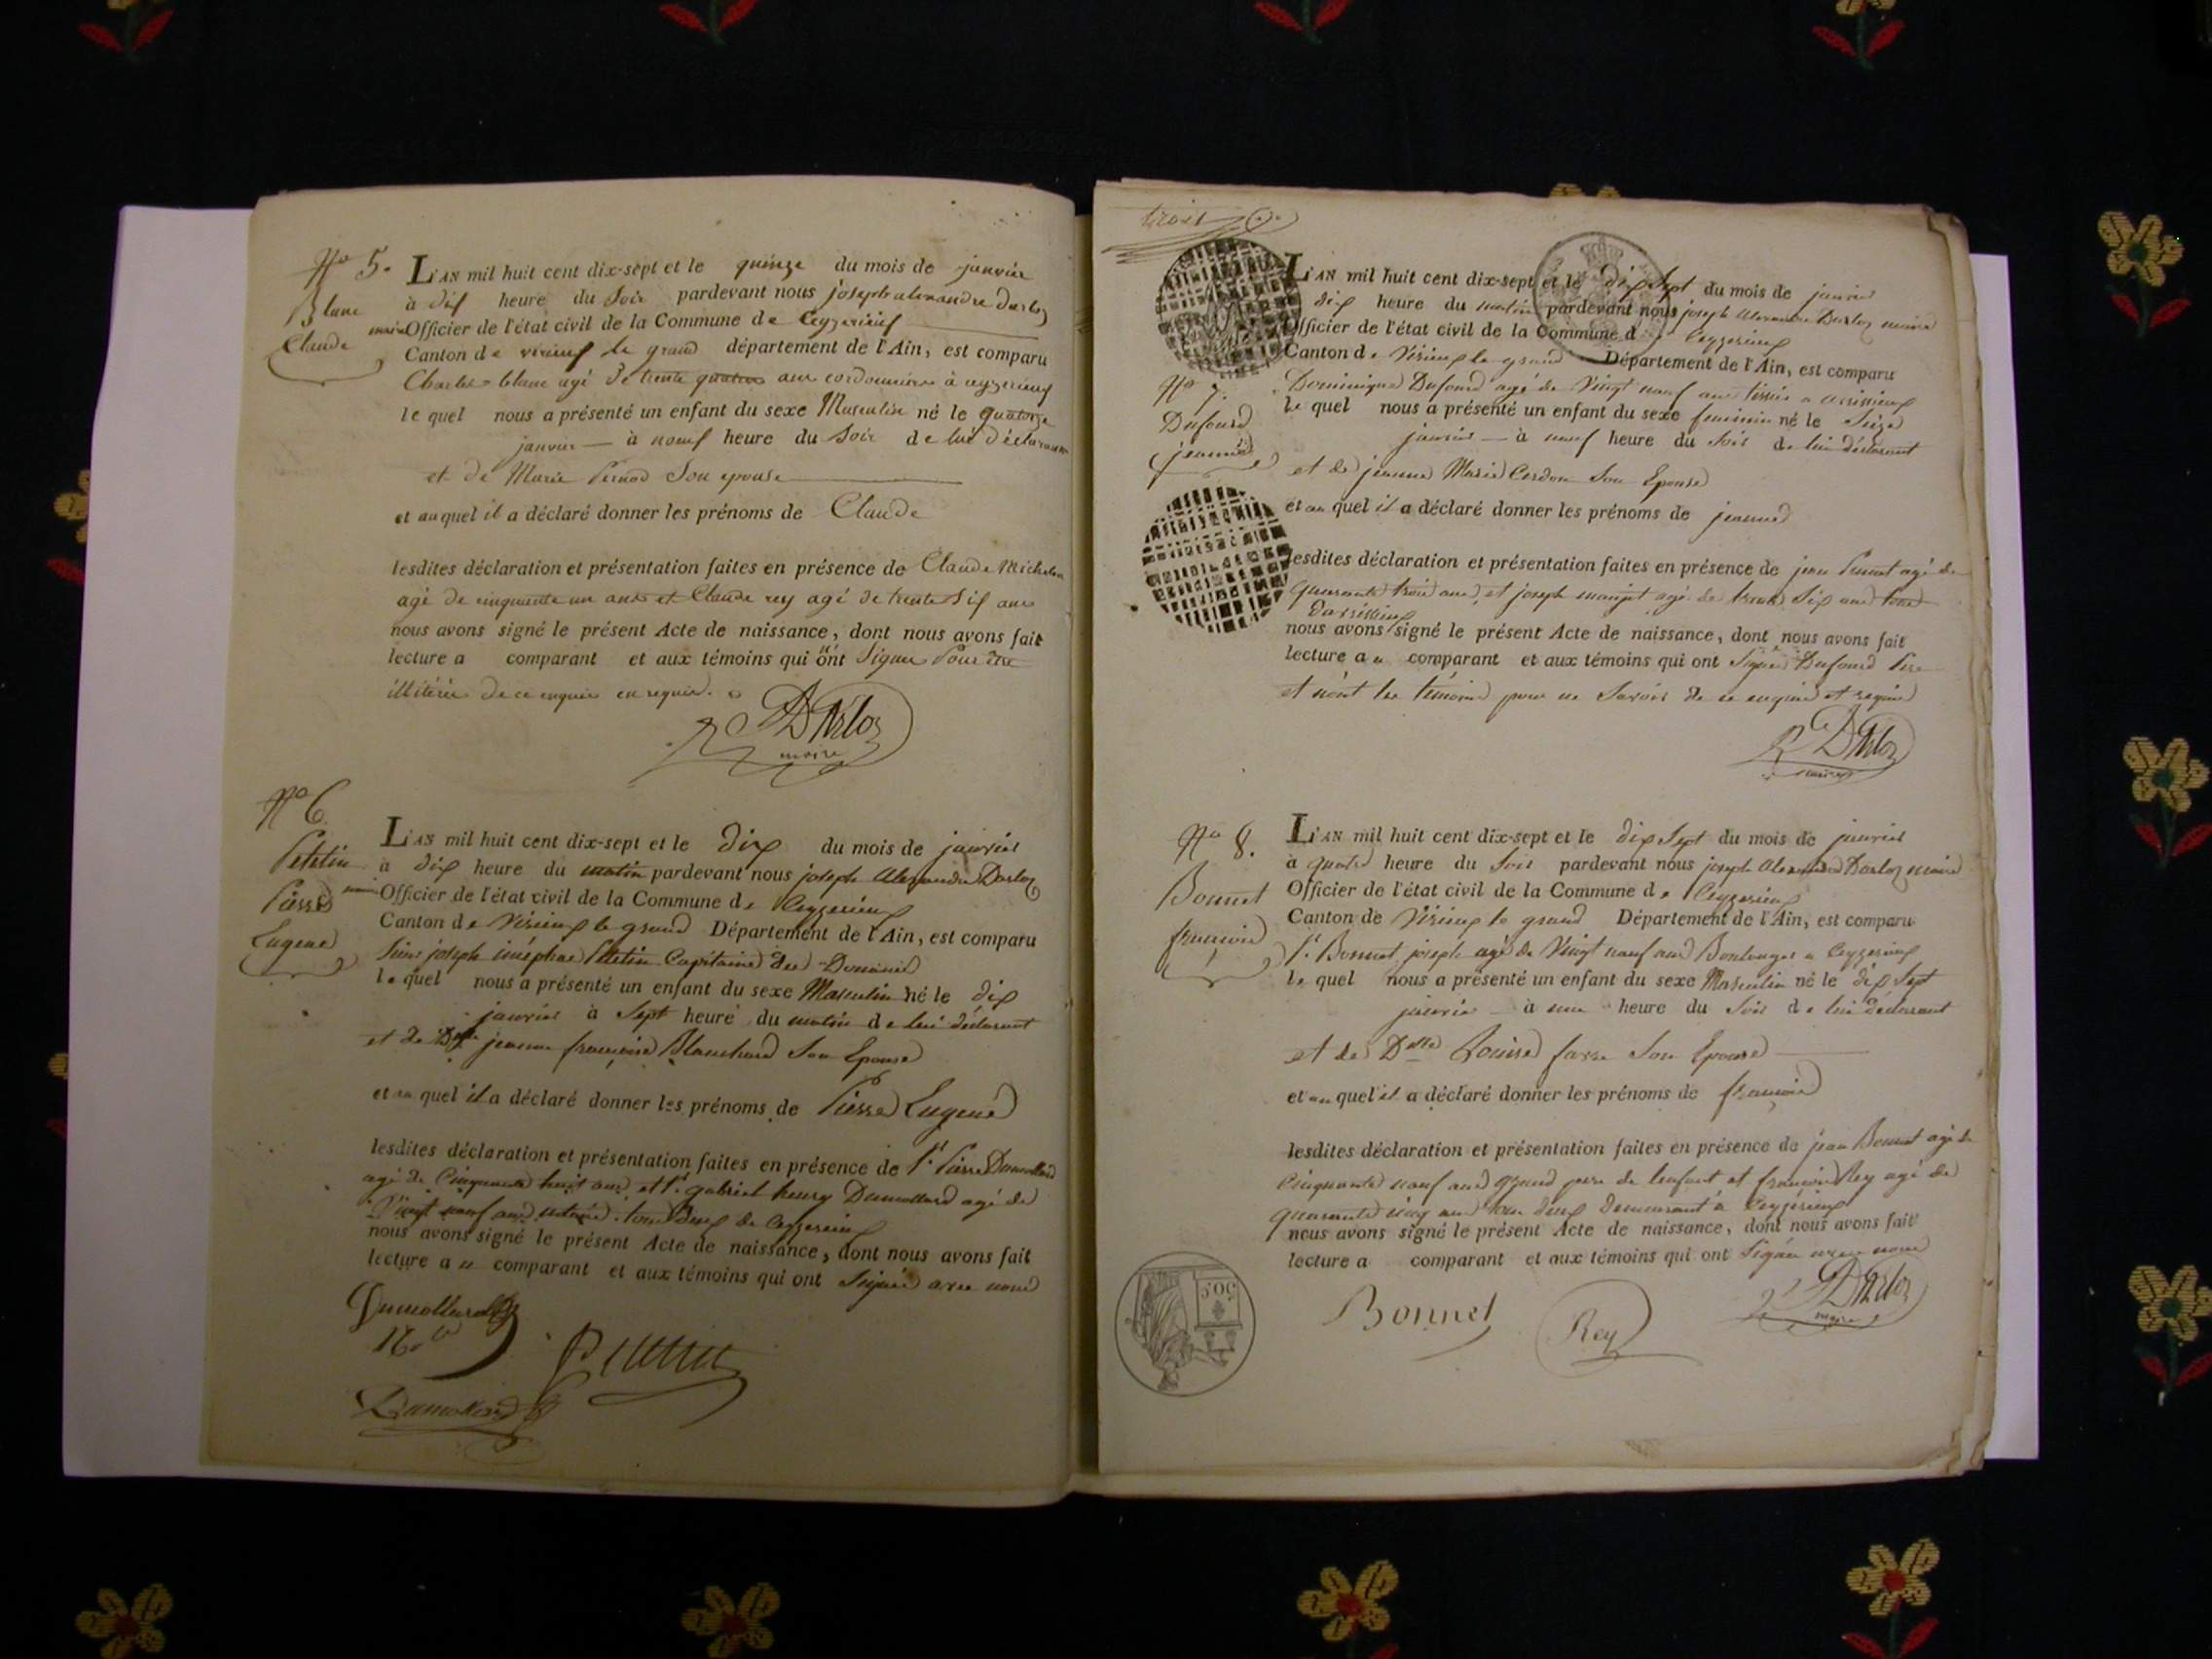 No 5.
Blanc
Claude
L'AN mil huit cent dix-sept et le quinze du mois de janvier
à dix heure du Soir pardevant nous joseph alexandre Darloz
maire Officier de l'état civil de la Commune de Ceyzerieux
Canton de virieux le grand département de l'Ain, est comparu
Charles blanc agé de trente quatre ans cordonnier à ceyzerieux
le quel nous a présenté un enfant du sexe Masculin né le quatorze
janvier — à neuf heure du Soir de lui déclarant
et de Marie Pernod Son epouse
et auquel il a déclaré donner les prénoms de Claude
lesdites déclaration et présentation faites en présence de Claude Michelon
agé de cinquante un ans et Claude rey agé de trente Six ans
nous avons signé le présent Acte de naissance, dont nous avons fait
lecture a comparant et aux témoins qui n'ont Signer Pour être
illitérés de ce enquis en requis.
Darloz
maire
No 6.
Petetin
Pierre
Eugene
L'AN mil huit cent dix-sept et le Dix du mois de janvier
à dix heure du matin pardevant nous joseph Alexandre Darloz
maire Officier de l'état civil de la Commune de Ceyzerieux
Canton de Virieux le grand Département de l'Ain, est comparu
Sieur joseph Petetin Capitaine des
le quel nous a présenté un enfant du sexe Masculin né le dix
janvier à Sept heure du matin de lui déclarant
et de jeanne françoise Blanchard Son Epouse
et au quel il a déclaré donner les prénoms de Pierre Eugene
lesdites déclaration et présentation faites en présence de Sr. Pierre Dumollard
agé de Cinquante huit ans et Sr. gabriel henry Dumollard agé de
Vingt neuf ans notaire. tous deux de Ceyzerieux
nous avons signé le présent Acte de naissance, dont nous avons fait
lecture a u comparant et aux témoins qui ont Signé avec nous
Dumollard
Petetin
Dumollard
trois
L'AN mil huit cent dix-sept et le dix Sept du mois de janvier
à dix heure du matin pardevant nous joseph Alexandre Darloz maire
Officier de l'état civil de la Commune de Ceyzerieux
Canton de Virieux le grand Département de l'Ain, est comparu
No 7.
Dufourd
jeanne
Dominique Dufourd agé de Vingt neuf ans tissier a
le quel nous a présenté un enfant du sexe feminin né le Seize
janvier — à neuf heure du Soir de lui déclarant
et de jeanne Marie Cerdon Son Epouse
et au quel il a déclaré donner les prénoms de jeanne
lesdites déclaration et présentation faites en présence de jean agé de
quarante trois ans et joseph agé de trente Six ans tous
nous avons signé le présent Acte de naissance, dont nous avons fait
lecture a u comparant et aux témoins qui ont Signé Dufourd Pere
et n'ont les témoins pour ne Savoir de ce enquis et requis
Darloz
maire
No 8.
Bonnet
françois
L'AN mil huit cent dix-sept et le dix Sept du mois de janvier
à quatre heure du Soir pardevant nous joseph Alexandre Darloz maire
Officier de l'état civil de la Commune de Ceyzerieux
Canton de Virieux le grand Département de l'Ain, est comparu
Sr. Bonnet joseph agé de Vingt neuf ans Boulanger a Ceyzerieux
le quel nous a présenté un enfant du sexe Masculin né le dix Sept
janvier — à une heure du Soir de lui déclarant
et de Delle Louise farre Son Epouse
et au quel il a déclaré donner les prénoms de françois
lesdites déclaration et présentation faites en présence de jean Bonnet agé de
Cinquante neuf ans grand pere de lenfant et françois Rey agé de
quarante cinq ans tous deux demeurant à Ceyzérieux
nous avons signé le présent Acte de naissance, dont nous avons fait
lecture a comparant et aux témoins qui ont Signés avec nous
50.C
Bonnet
Rey
Darloz
maire